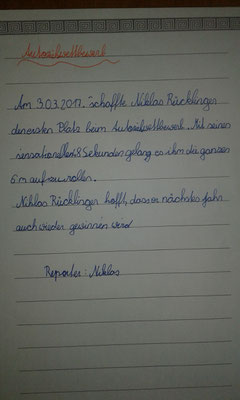 Autoseilwettbewerb
Am 30.3.2017 schaffte Niklas Rücklinger
den ersten Platz beim Autoseilwettbewerb. Mit seinen
sensationellen 8 Sekunden gelang es ihm die ganzen
6 m aufzurollen.
Niklas Rücklinger hofft, dass er nächstes Jahr
auch wieder gewinnen wird
Reporter: Niklas